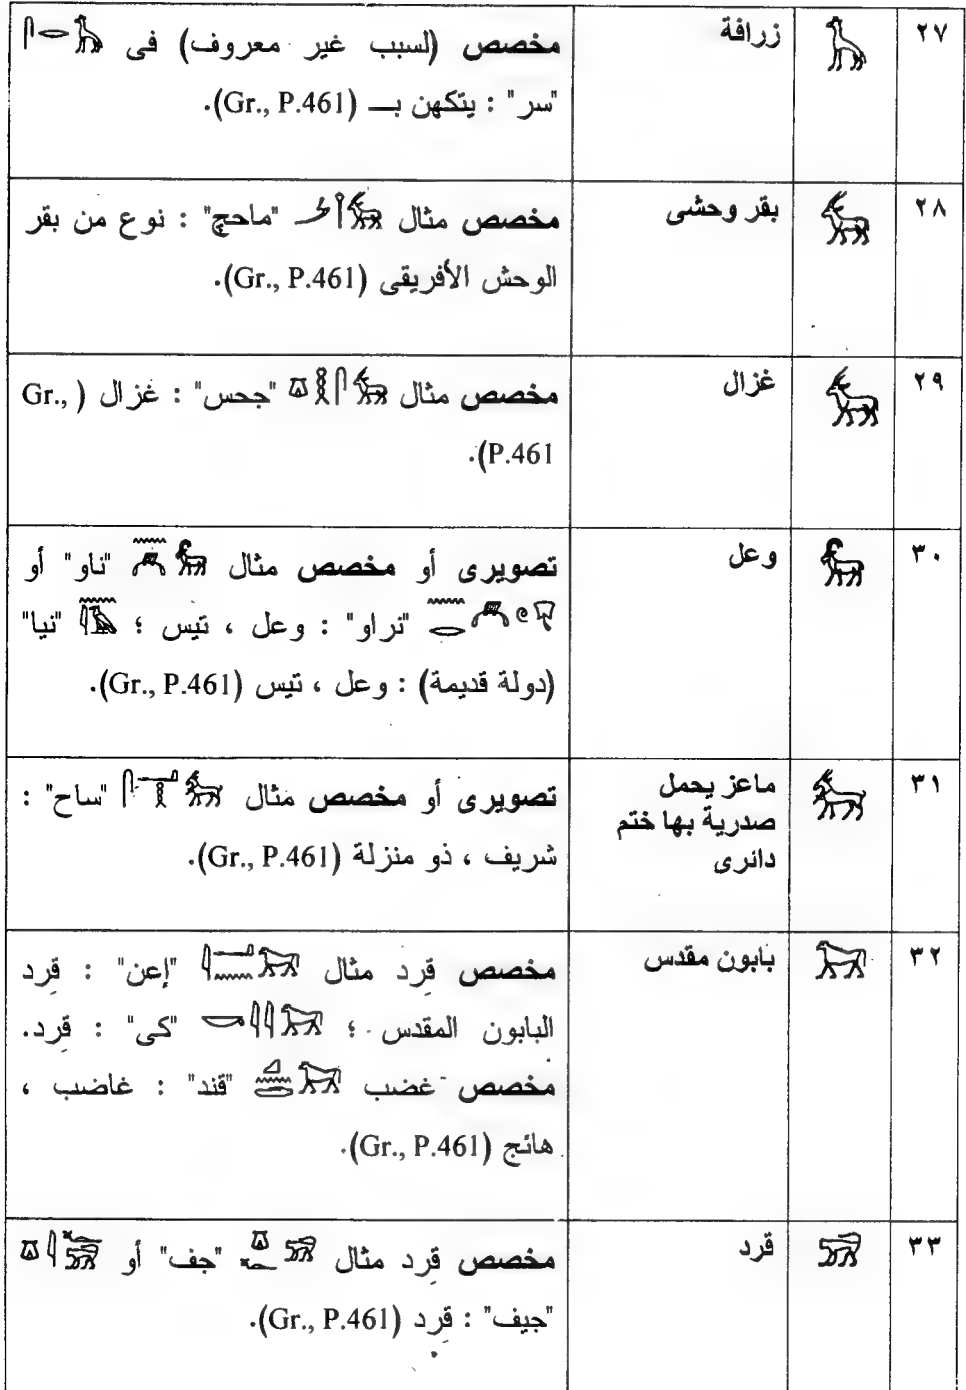 ٢٧ زرافة مخصص (لسبب غير معروف) فى
"سر" : يتكهن بـ (Gr., P.461).
٢٨ بقر وحشى مخصص مثال "ماحچ" : نوع من بقر
الوحش الأفريقى (Gr., P.461).
٢٩ غزال مخصص مثال "جحس" : غزال (Gr.,
P.461).
٣٠ وعل تصويرى أو مخصص مثال "ناو" أو
"نراو" : وعل ، تيس ؛ "نيا"
(دولة قديمة) : وعل ، تيس (Gr., P.461).
٣١ ماعز يحمل
صدرية بها ختم
دائرى
تصويرى أو مخصص مثال "ساح" :
شريف ، ذو منزلة (Gr., P.461).
٣٢ بابون مقدس مخصص قِرد مثال "إعن" : قِرد
البابون المقدس ؛ "كى" : قِرد.
مخصص غضب "قند" : غاضب ،
هائج (Gr., P.461).
٣٣ قرد مخصص قِرد مثال "جف" أو
"جيف" : قِرد (Gr., P.461).